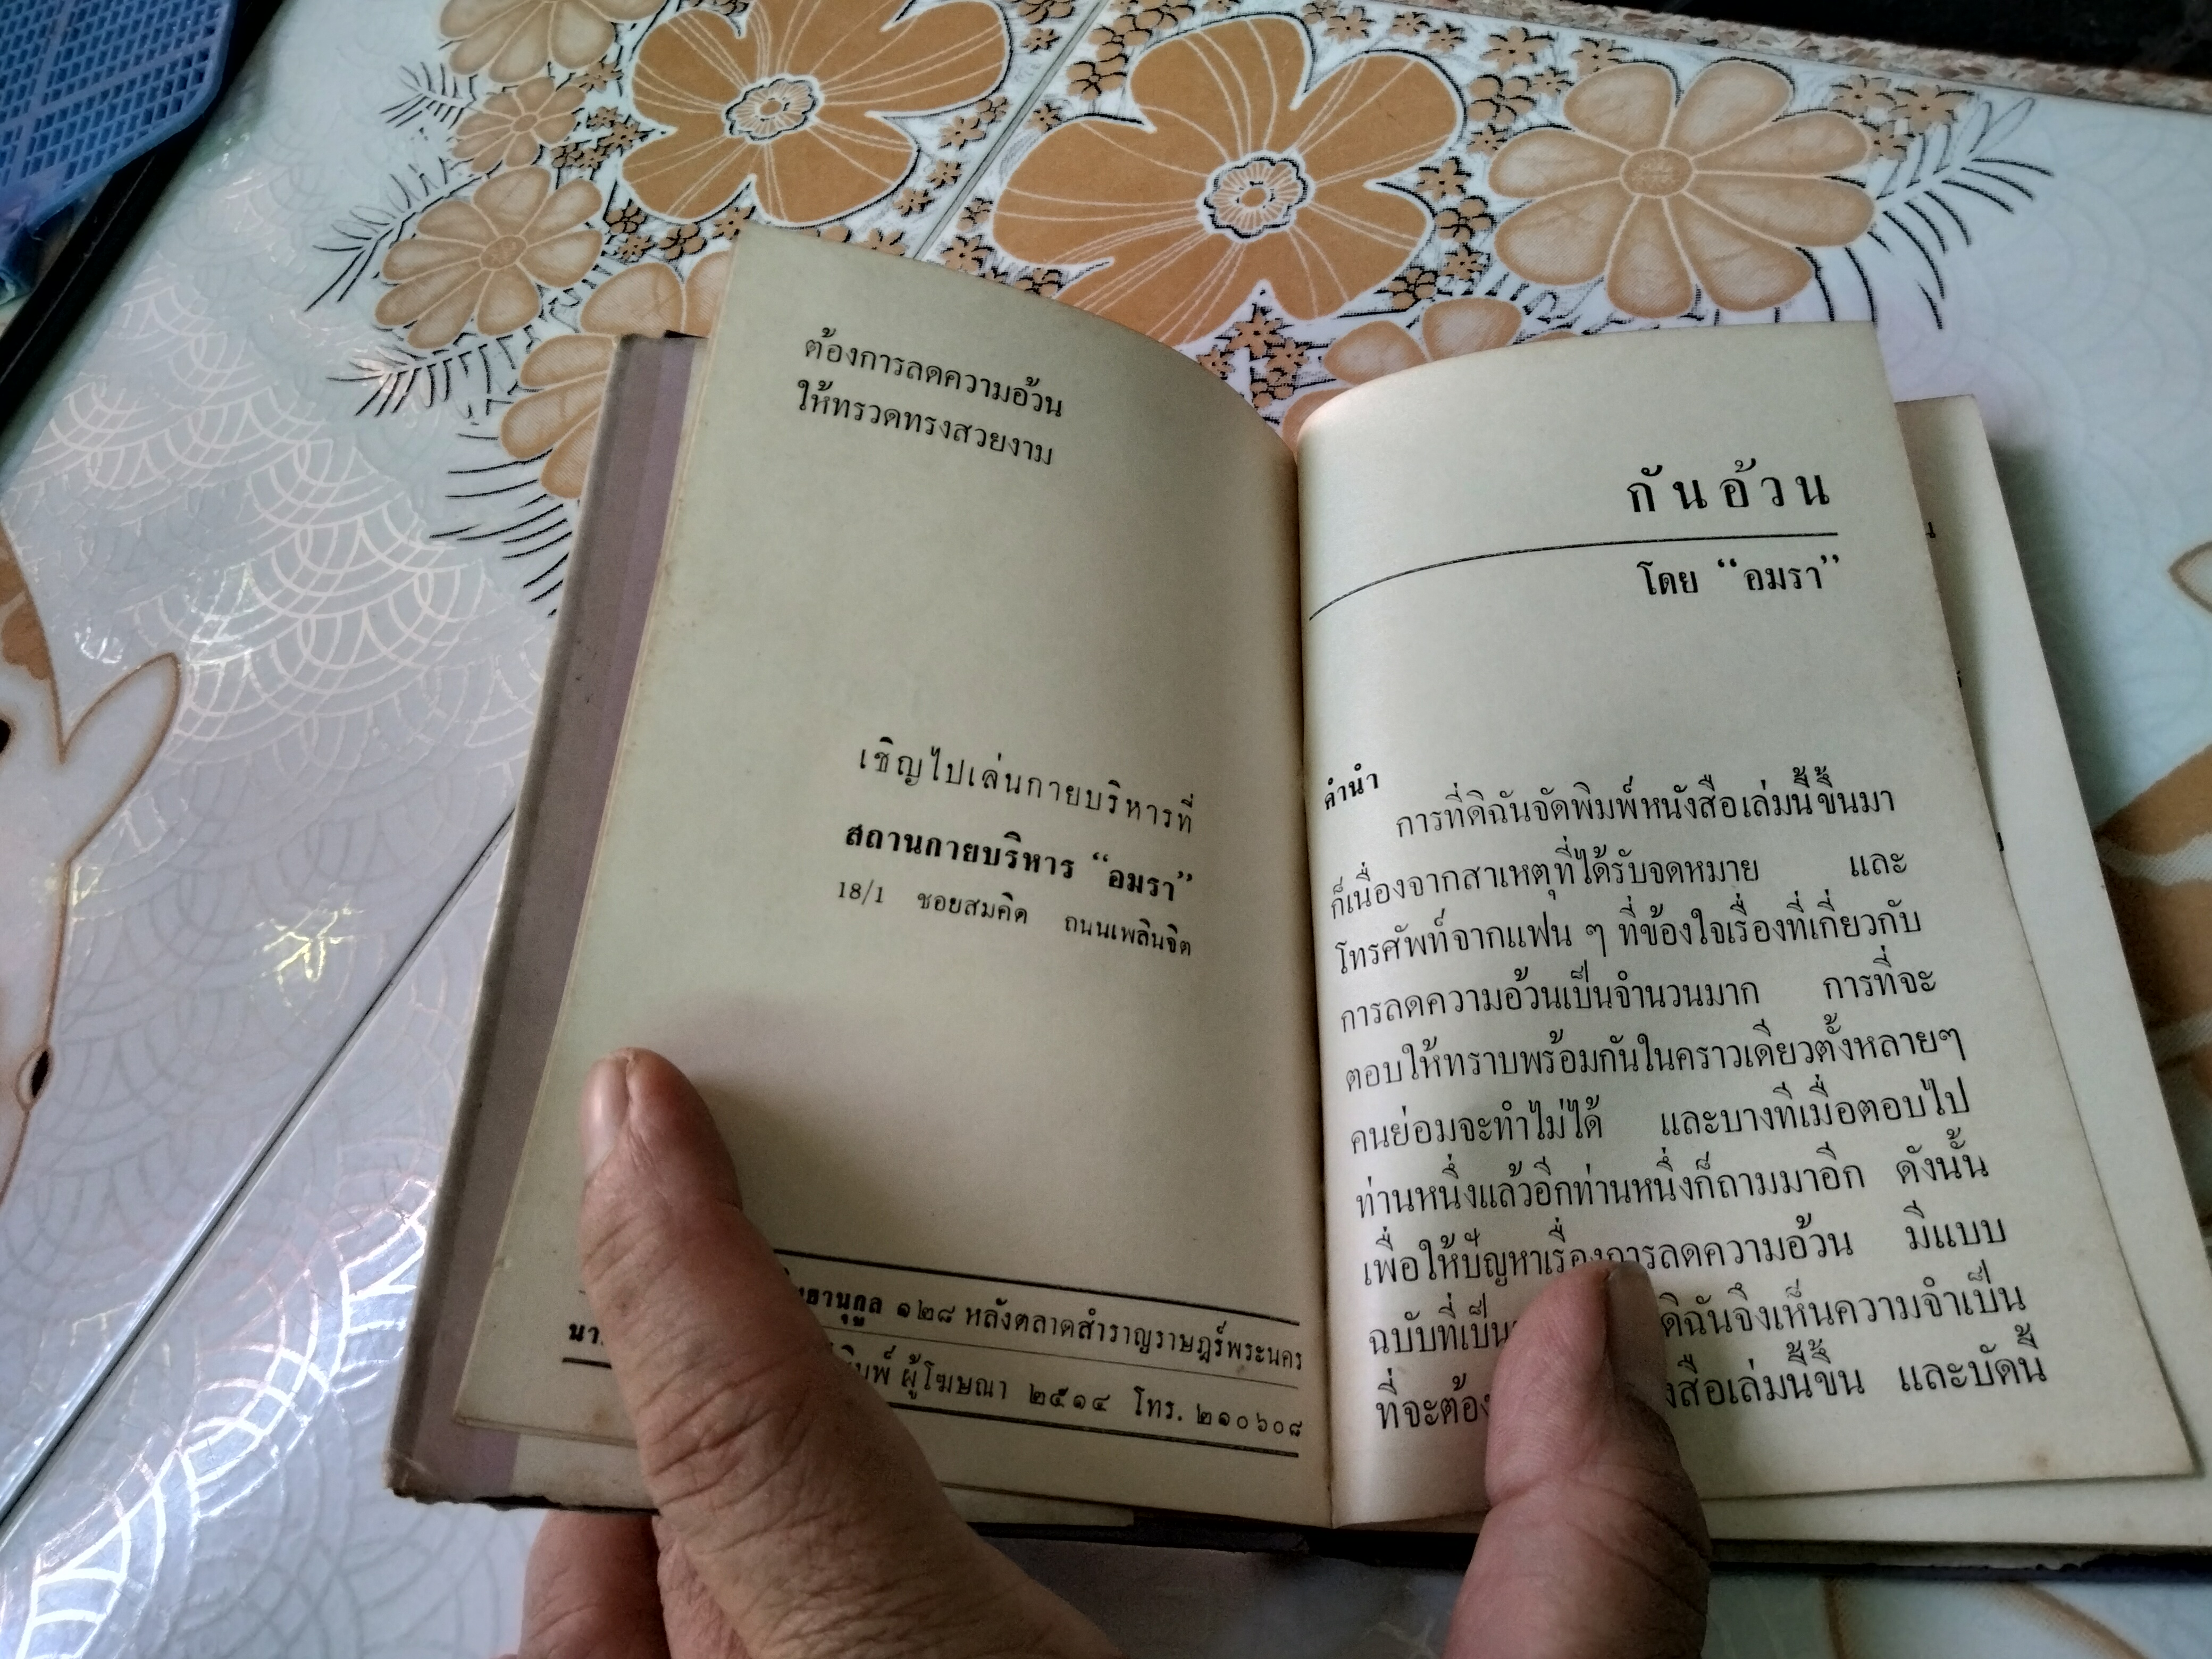 ต้องการลดความอ้วน
ให้ทรวดทรงสวยงาม
เชิญไปเล่นกายบริหารที่
สถานกายบริหาร “อมรา”
18/1 ซอยสมคิด ถนนเพลินจิต
๑๒๘ หลังตลาดสำราญราษฎร์พระนคร
ผู้โฆษณา ๒๕๑๔ โทร. ๒๑๐๖๐๘
กันอ้วน
โดย “อมรา”
คำนำ
การที่ดิฉันจัดพิมพ์หนังสือเล่มนี้ขึ้นมา
ก็เนื่องจากสาเหตุที่ได้รับจดหมาย และ
โทรศัพท์จากแฟน ๆ ที่ข้องใจเรื่องที่เกี่ยวกับ
การลดความอ้วนเป็นจำนวนมาก การที่จะ
ตอบให้ทราบพร้อมกันในคราวเดียวตั้งหลายๆ
คนย่อมจะทำไม่ได้ และบางทีเมื่อตอบไป
ท่านหนึ่งแล้วอีกท่านหนึ่งก็ถามมาอีก ดังนั้น
เพื่อให้ปัญหาเรื่องการลดความอ้วน มีแบบ
ฉบับที่เป็น ดิฉันจึงเห็นความจำเป็น
ที่จะต้อง สือเล่มนี้ขึ้น และบัดนี้